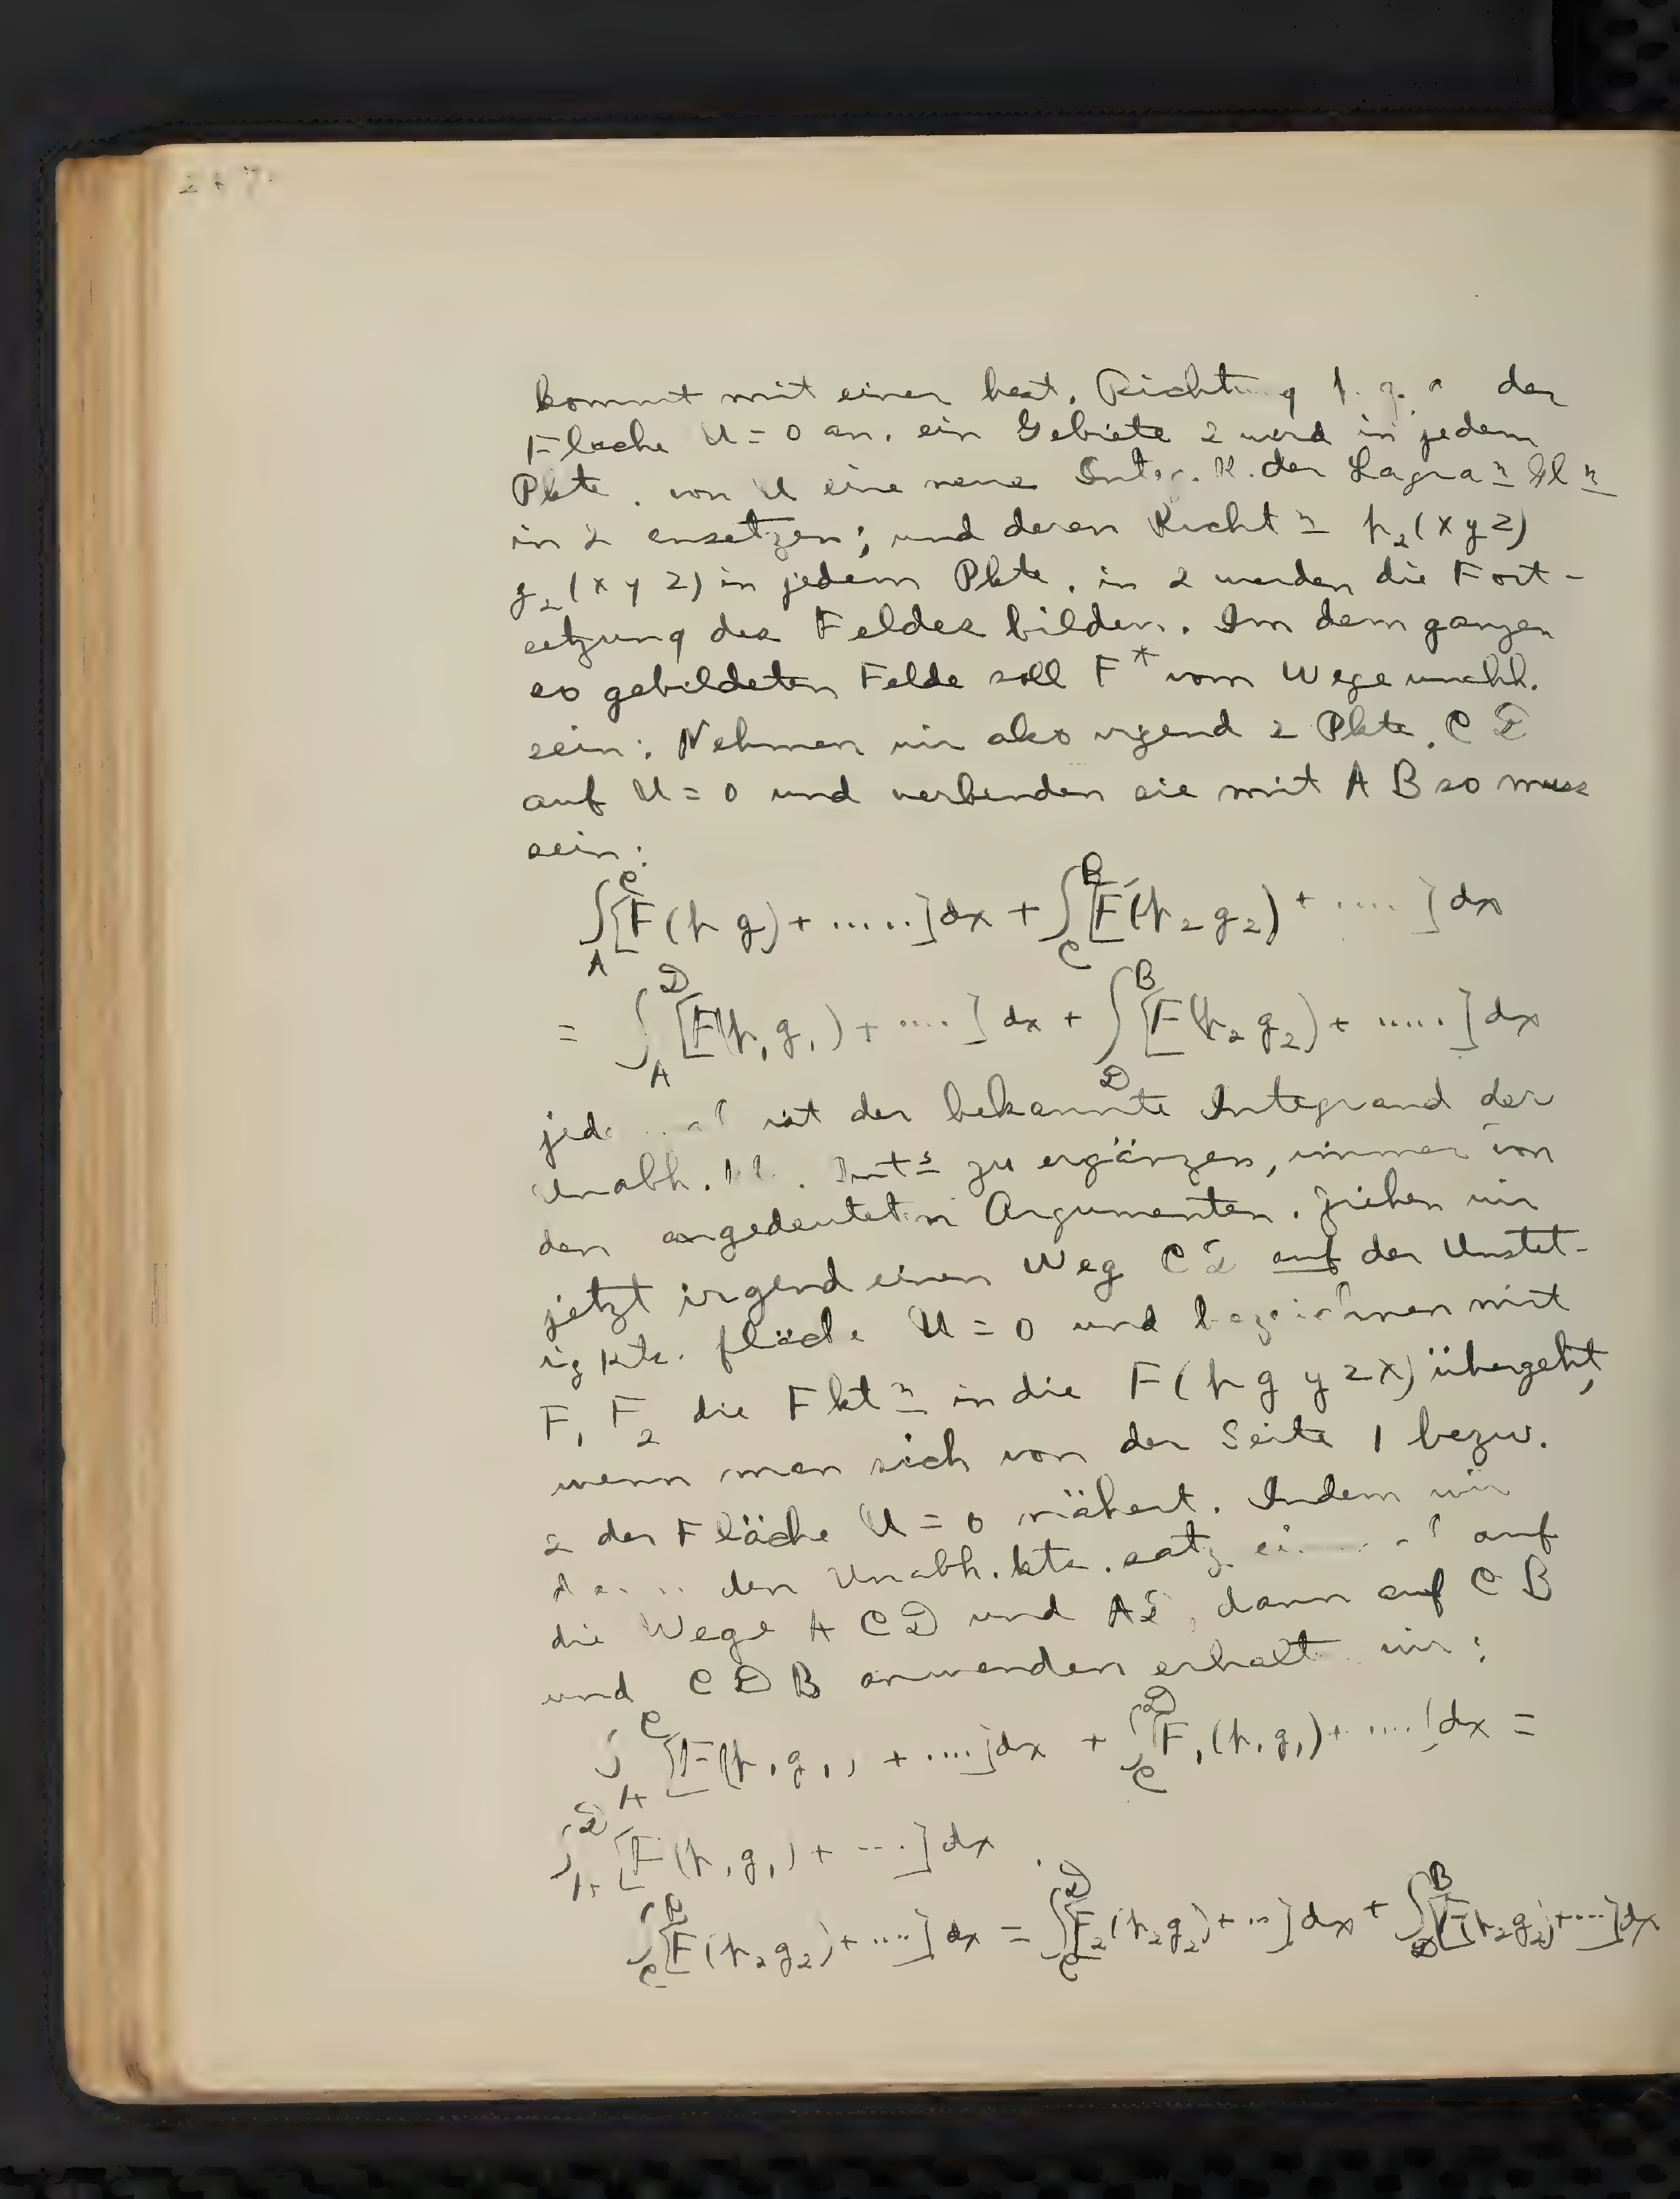 kommt mit einer best. Richtung p. q. a der
Fläche U = 0 an. ein Gebiete 2 wird in jedem
Pkte. von U eine neue Integ. K. der Lagra n Gl n
in 2 ensetzen; und deren Richt n p₂(x y z)
q₂(x y z) in jedem Pkte. in 2 werden die Fort-
setzung des Feldes bilden. Im dem ganzen
so gebildeten Felde soll F* vom Wege unabh.
sein: Nehmen wir also irgend 2 Pkte. C D
auf U = 0 und verbinden sie mit A B so muss
sein:
∫_A^C [F(p q) + .....] dx + ∫_C^B [F(p₂ q₂) + ....] dx
= ∫_A^D [F(p₁ q₁) + ....] dx + ∫_D^B [F(p₂ q₂) + .....] dx
ist der bekannte Integrand der
Unabh. Int s zu ergänzen, immer von
den angedeuteten Argumenten. ziehen wir
jetzt irgend einen Weg C D auf der Unstet-
igkts. fläche U = 0 und bezeichnen mit
F₁ F₂ die Fkt n in die F(p q y z x) übergeht,
wenn man sich von der Seite 1 bezw.
2 der Fläche U = 0 nähert. Indem wir
den Unabh.kts. satz auf
die Wege A C D und A D, dann auf C B
und C D B anwenden erhalt wir:
∫_A^C [F(p₁ q₁) + ....] dx + ∫_C^D [F₁(p₁ q₁) + ....] dx =
∫_A^D [F(p₁ q₁) + ...] dx.
∫_C^B [F(p₂ q₂) + ....] dx = ∫_C^D [F₂(p₂ q₂) + ..] dx + ∫_D^B [F(p₂ q₂) + ...] dx